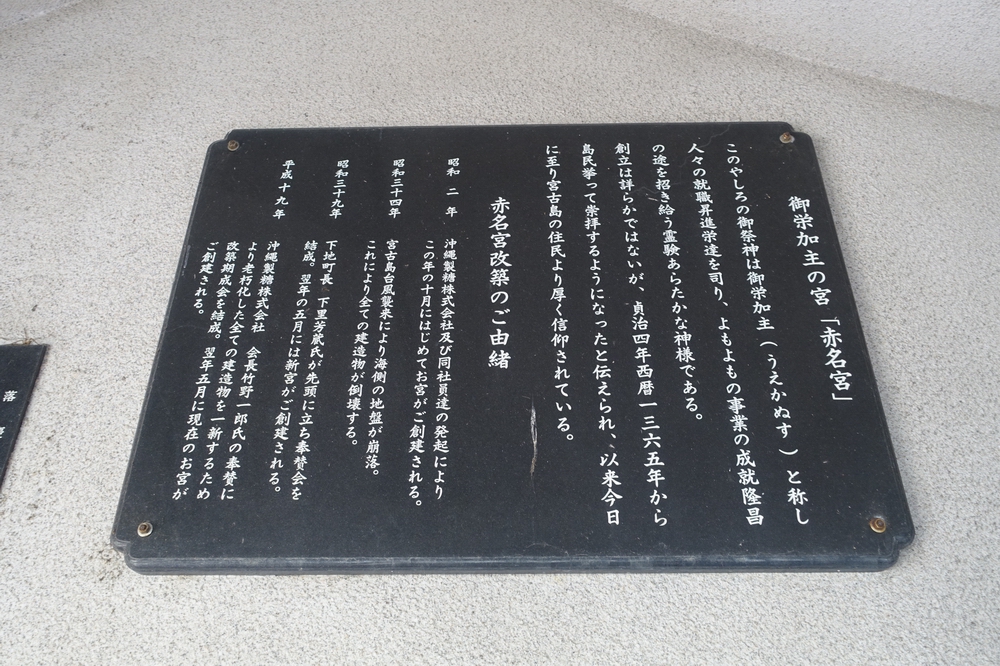 御栄加主の宮「赤名宮」
このやしろの御祭神は御栄加主（うえかぬす）と称し
人々の就職昇進栄達を司り、よもよもの事業の成就隆昌
の途を招き給う霊験あらたかな神様である。
創立は詳らかではないが、貞治四年西暦一三六五年から
島民挙って崇拝するようになったと伝えられ、以来今日
に至り宮古島の住民より厚く信仰されている。
赤名宮改築のご由緒
昭和二年
沖縄製糖株式会社及び同社員達の発起により
この年の十月にはじめてお宮がご創建される。
昭和三十四年
宮古島台風襲来により海側の地盤が崩落。
これにより全ての建造物が倒壊する。
昭和三十九年
下地町長　下里芳蔵氏が先頭に立ち奉賛会を
結成、翌年の五月には新宮がご創建される。
平成十九年
沖縄製糖株式会社　会長竹野一郎氏の奉賛に
より老朽化した全ての建造物を一新するため
改築期成会を結成。翌年五月に現在のお宮が
ご創建される。
落